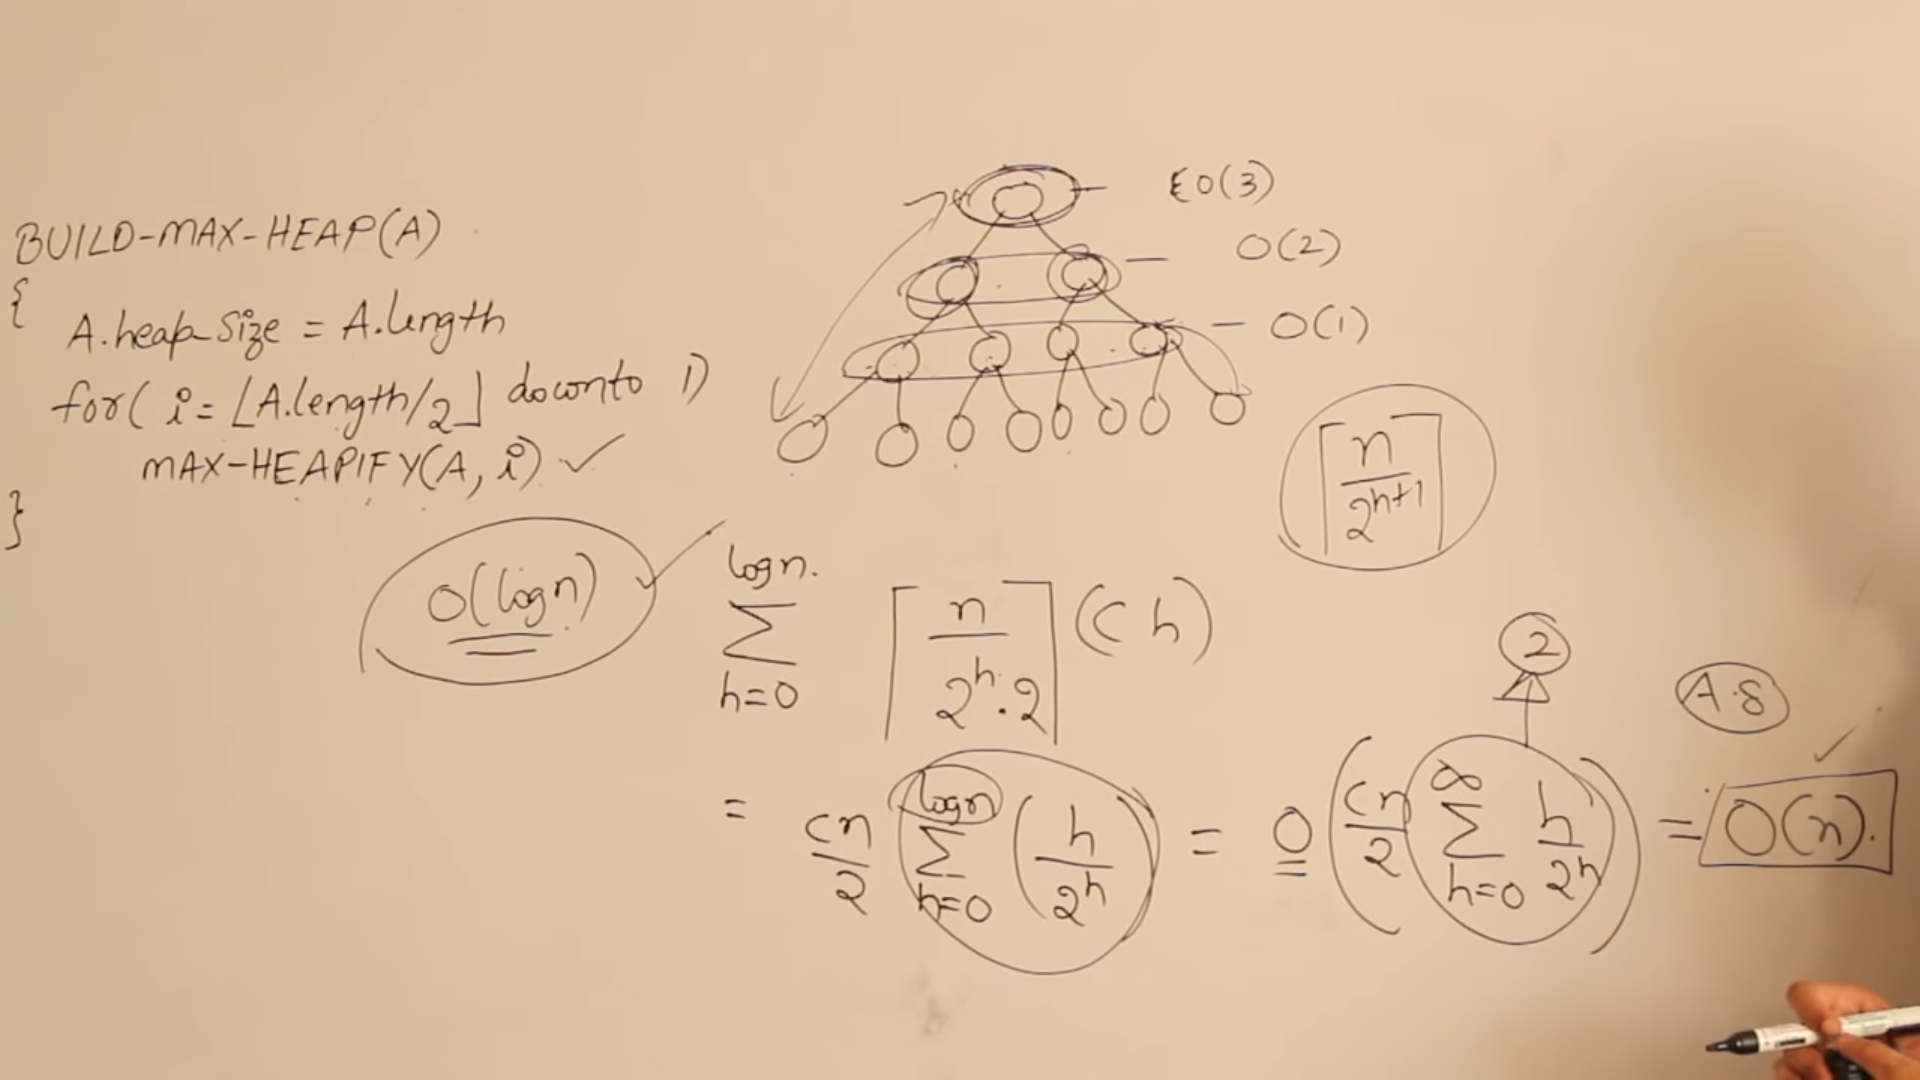 BUILD-MAX-HEAP(A)
{
A.heap-size = A.length
for( i = ⌊A.length/2⌋ downto 1)
MAX-HEAPIFY(A, i) ✓
}
O(3)
O(2)
O(1)
⌈n/2^(h+1)⌉
O(log n) ✓
∑_{h=0}^{log n} ⌈n/(2^h · 2)⌉ (c h)
2
A.8
= cn/2 ∑_{h=0}^{log n} (h/2^h) = O(cn/2 ∑_{h=0}^{∞} h/2^h) = O(n). ✓